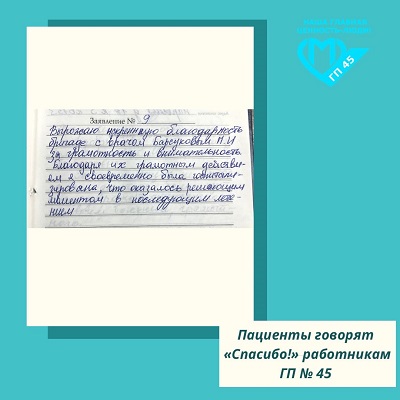 НАША ГЛАВНАЯ
ЦЕННОСТЬ - ЛЮДИ
ГП 45
Заявление № 9
Выражаю искреннюю благодарность
бригаде с врачом Барсуковым Н.И
за грамотность и внимательность.
Благодаря их грамотным действи-
ем я своевременно была госпитали-
зирована, что оказалось решающим
моментом в последующем лече-
нии
Пациенты говорят
«Спасибо!» работникам
ГП № 45